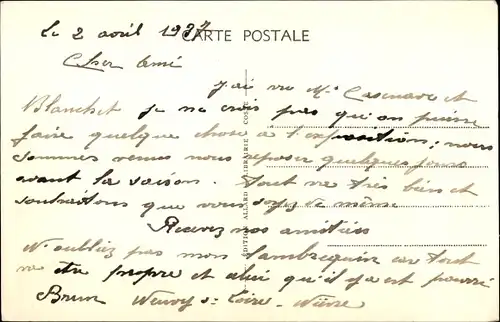 le 2 avril 1937
CARTE POSTALE
Cher Ami
J'ai vu Mr Casenave et
Blanchet je ne crois pas qu'on puisse
faire quelque chose à l'exposition, nous
sommes venus nous reposer quelques jours
avant la saison. Tout va très bien et
souhaitons que vous soyez de même
Recevez nos amitiés
N'oubliez pas mon lambrequin car tout
va être propre et celui qu'il y a est pourri
Brun Neuvy s. Loire - Nièvre
EDITION ALLARD LIBRAIRIE COSNE